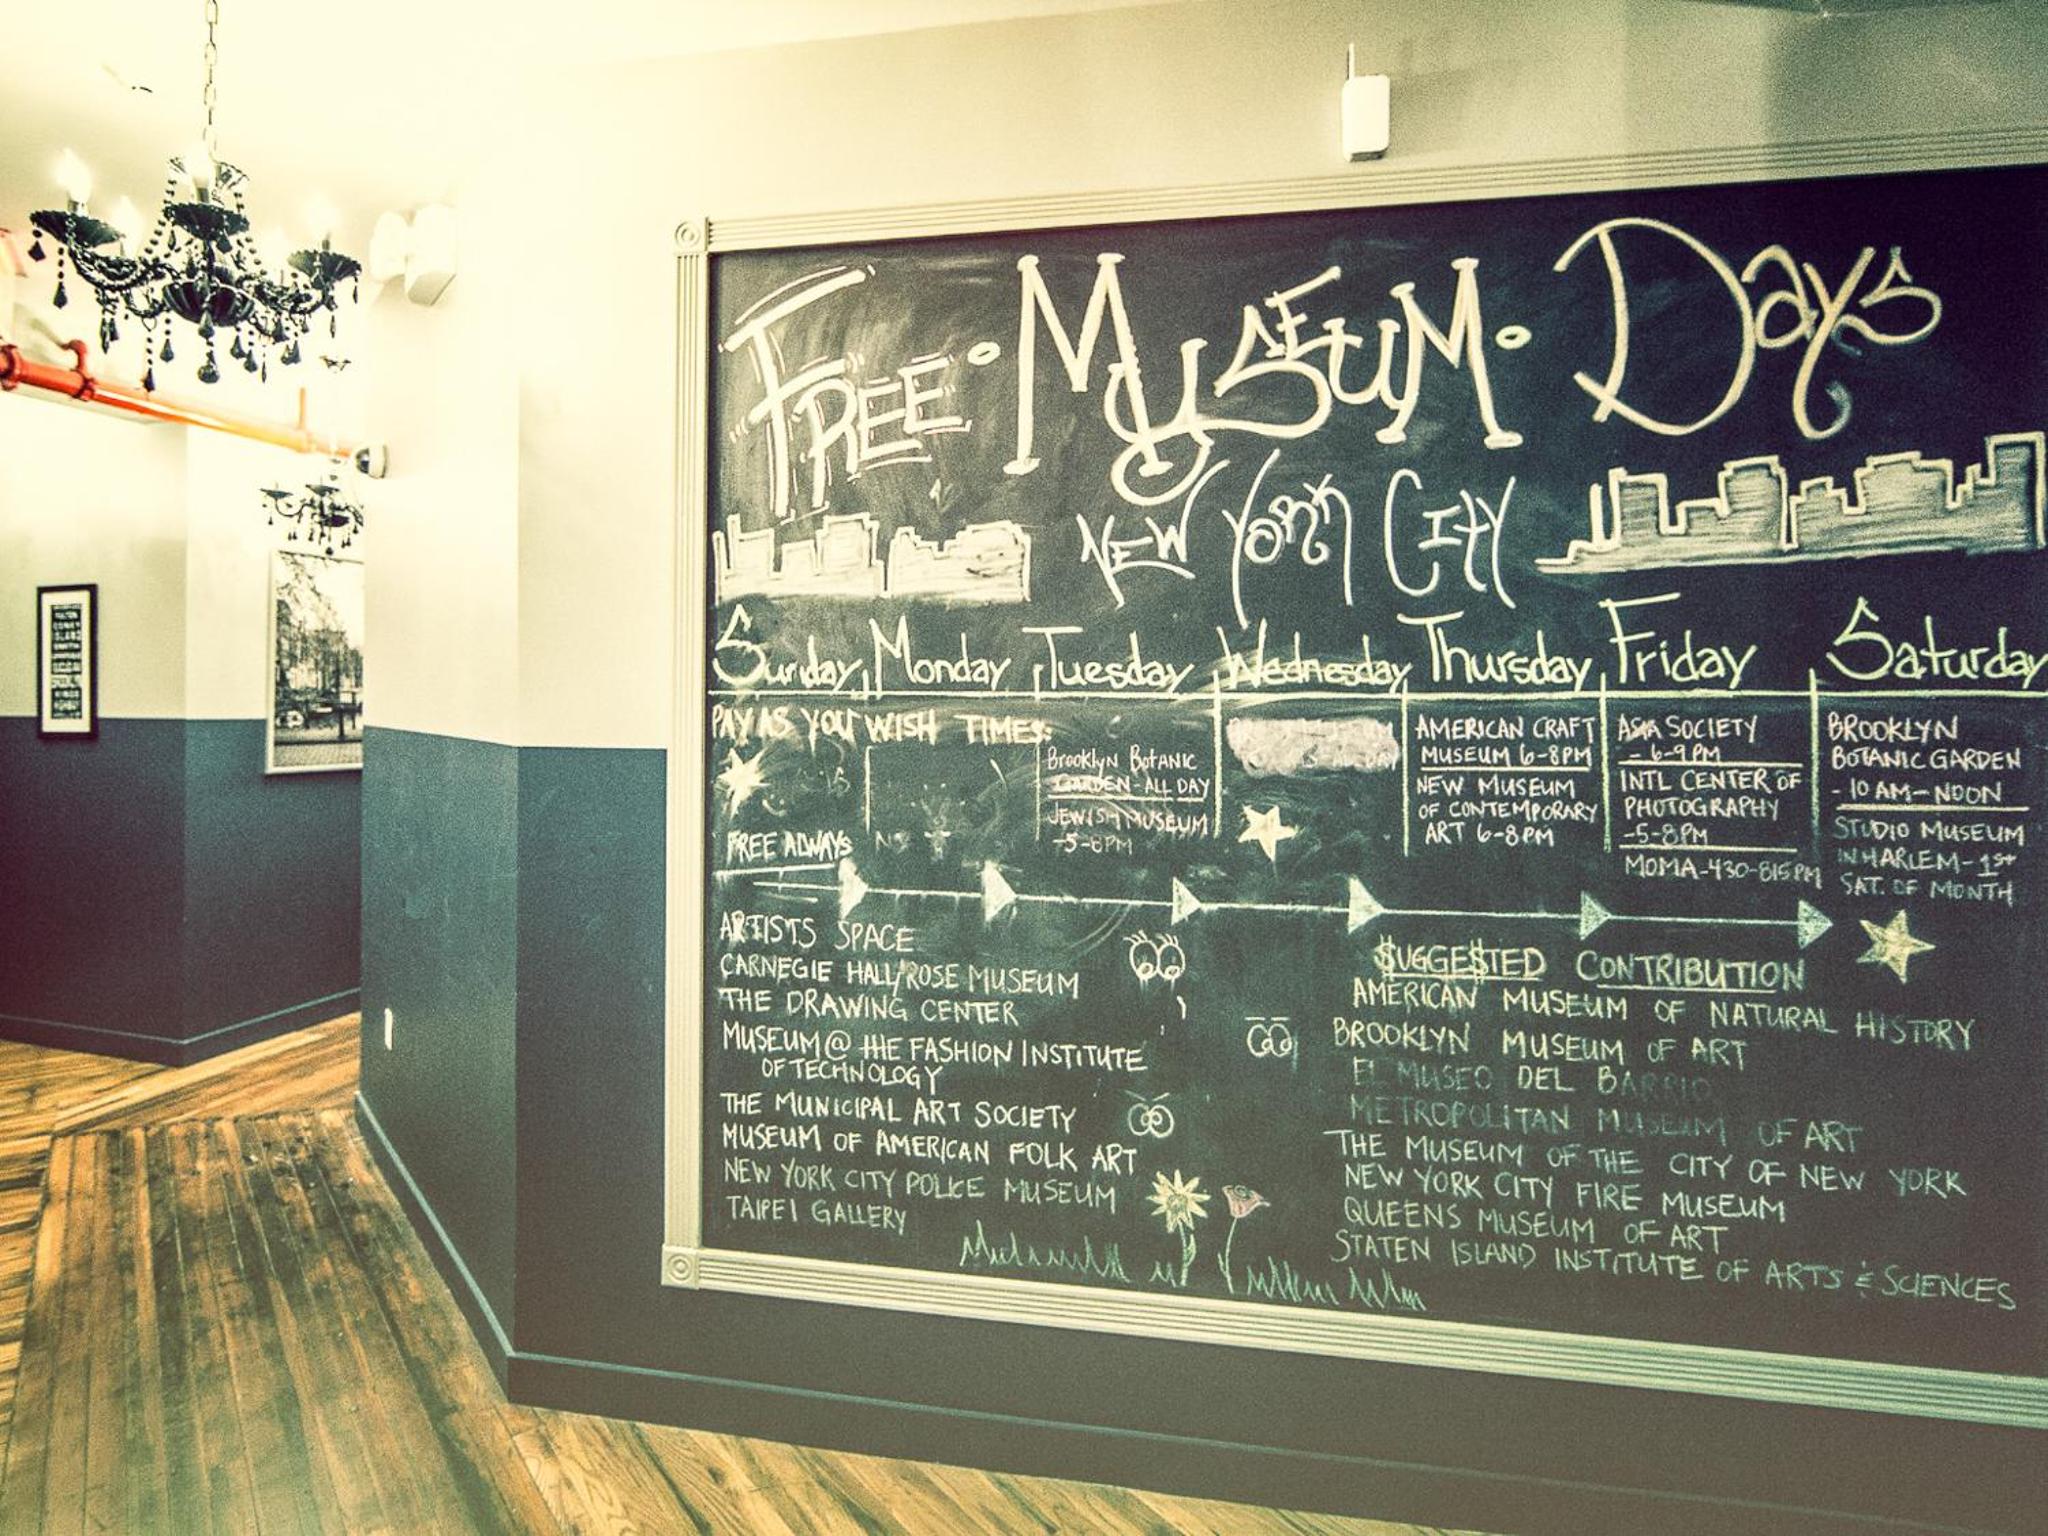 FREE • MUSEUM • Days
NEW York CITY
Sunday Monday Tuesday Wednesday Thursday Friday Saturday
PAY AS YOU WISH TIMES:
Brooklyn Botanic
GARDEN - ALL DAY
JEWISH MUSEUM
-5-8PM
AMERICAN CRAFT
MUSEUM 6-8PM
NEW MUSEUM
OF CONTEMPORARY
ART 6-8PM
ASIA SOCIETY
- 6-9PM
INTL CENTER OF
PHOTOGRAPHY
-5-8PM
MOMA-430-815PM
BROOKLYN
BOTANIC GARDEN
- 10 AM-NOON
STUDIO MUSEUM
IN HARLEM-1st
SAT. OF MONTH
FREE ALWAYS
ARTISTS SPACE
CARNEGIE HALL/ROSE MUSEUM
THE DRAWING CENTER
MUSEUM @ tHE FASHION INSTITUTE
OF TECHNOLOGY
THE MUNICIPAL ART SOCIETY
MUSEUM OF AMERICAN FOLK ART
NEW YORK CITY POLICE MUSEUM
TAIPEI GALLERY
$UGGE$TED CONTRIBUTION
AMERICAN MUSEUM OF NATURAL HISTORY
BROOKLYN MUSEUM OF ART
EL MUSEO DEL BARRIO
METROPOLITAN MUSEUM OF ART
THE MUSEUM OF THE CITY OF NEW YORK
NEW YORK CITY FIRE MUSEUM
QUEENS MUSEUM OF ART
STATEN ISLAND INSTITUTE OF ARTS & SCIENCES